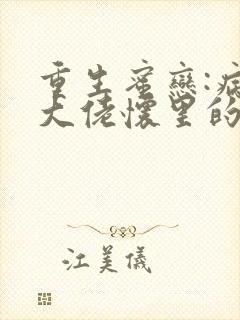 重生蜜恋:病
大佬怀里的
江美儀